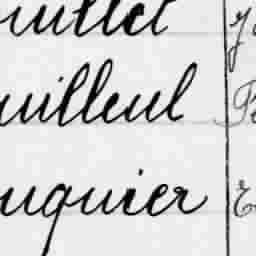 uillet
uilleul
uquier